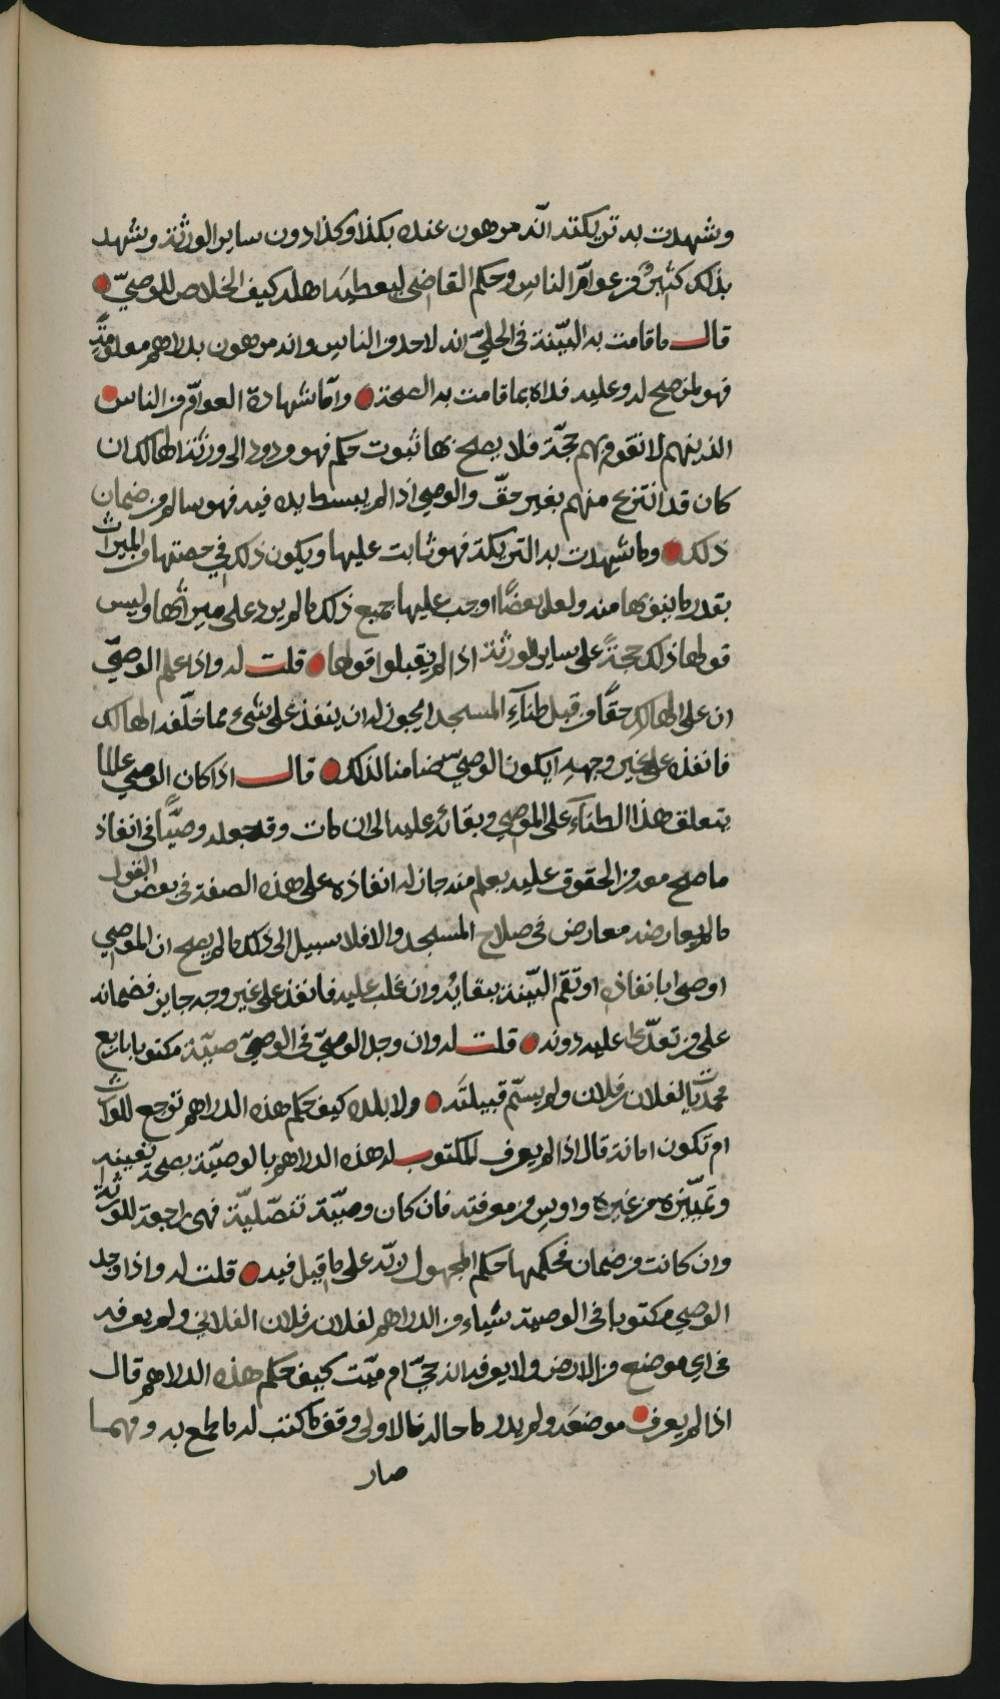 وشهدت به تريكته انّه مرهون عنده بكذا وكذا دون ساير الورثة وشهد
بذلك كثيرٌ من عوامّ الناس وحكم القاضى ليعطيَه اهله كيف الخلاص للوصيّ
قال ما قامت به البيّنة فى الحليّ انه لاحد من الناس وانه مرهون بدراهم معلومةٍ
فهو لمن صح له وعليه فداه بما قامت به الصحة وامّا شهادة العوامّ من الناس
الذين هم لا تقوم بهم حجّة فلا يصلح بها ثبوت حكم فهو مردود الى ورثة الهالك ان
كان قد انتزع منهم بغير حقّ والوصي اذا لم يبسط يده فيه فهو سالم من ضمان
ذلك وما شهدت به التريكة فهو ثابت عليها ويكون ذلك في حصتها من الميراث
بقدر ما ينوبها منه ولعل بعضًا اوجب عليها جميع ذلك ما لم يزد على ميراثها وليس
قولها ذلك حجةً على ساير الورثة اذا لم يقبلوا قولها قلت له واذا علم الوصيّ
ان على الهالك حقًّا من قبل طنآءِ المسجد ايجوز له ان ينفذ على شيء مما خلّفه الهالك
فانفذه على غير وجههِ ايكون الوصيّ ضامنا لذلك قال اذا كان الوصي عالما
بتعلق هذا الطنآء على الموصي وبقائه عليه الى ان مات وقد جعله وصيًّا فى انفاذ
ما صح معه من الحقوق عليه بعلم منه جاز له انفاذه على هذه الصفة فى بعض القول
ما لم يعارضه معارض فى صلاح المسجد والا فلا سبيل الى ذلك ما لم يصح ان الموصي
اوصى بانفاذه او تقم البيّنة ببقائه وان غلب عليه فانفذ على غير وجه جايز فضمانه
على من تعدّى عليه دونه قلت له وان وجد الوصيّ فى الوصيّة مكتوبا باربع
محمديّات لفلان بن فلان ولم يسمّ قبيلتَه ولا بلده كيف حكم هذه الدراهم ترجع للوارث
ام تكون امانة قال اذا لم يعرف المكتوب له هذه الدراهم بالوصيّة بصحة تعيينه
وتميّزه من غيره واويس من معرفته فان كان وصيّة تنصّليّة فهى راجعة للورثة
وان كانت من ضمان فحكمها حكم المجهول ربّه على ما قيل فيه قلت له واذا وجد
الوصي مكتوبا فى الوصية شياء من الدراهم لفلان بن فلان الفلاني ولم يعرفه
فى اي موضع من الارض ولا يعرف انه حيّ ام ميّت كيف حكم هذه الدراهم قال
اذا لم يعرف موضعَه ولم يدر ما حاله فالاولى وقف ما كتب له ما طمع به ومهما
صار